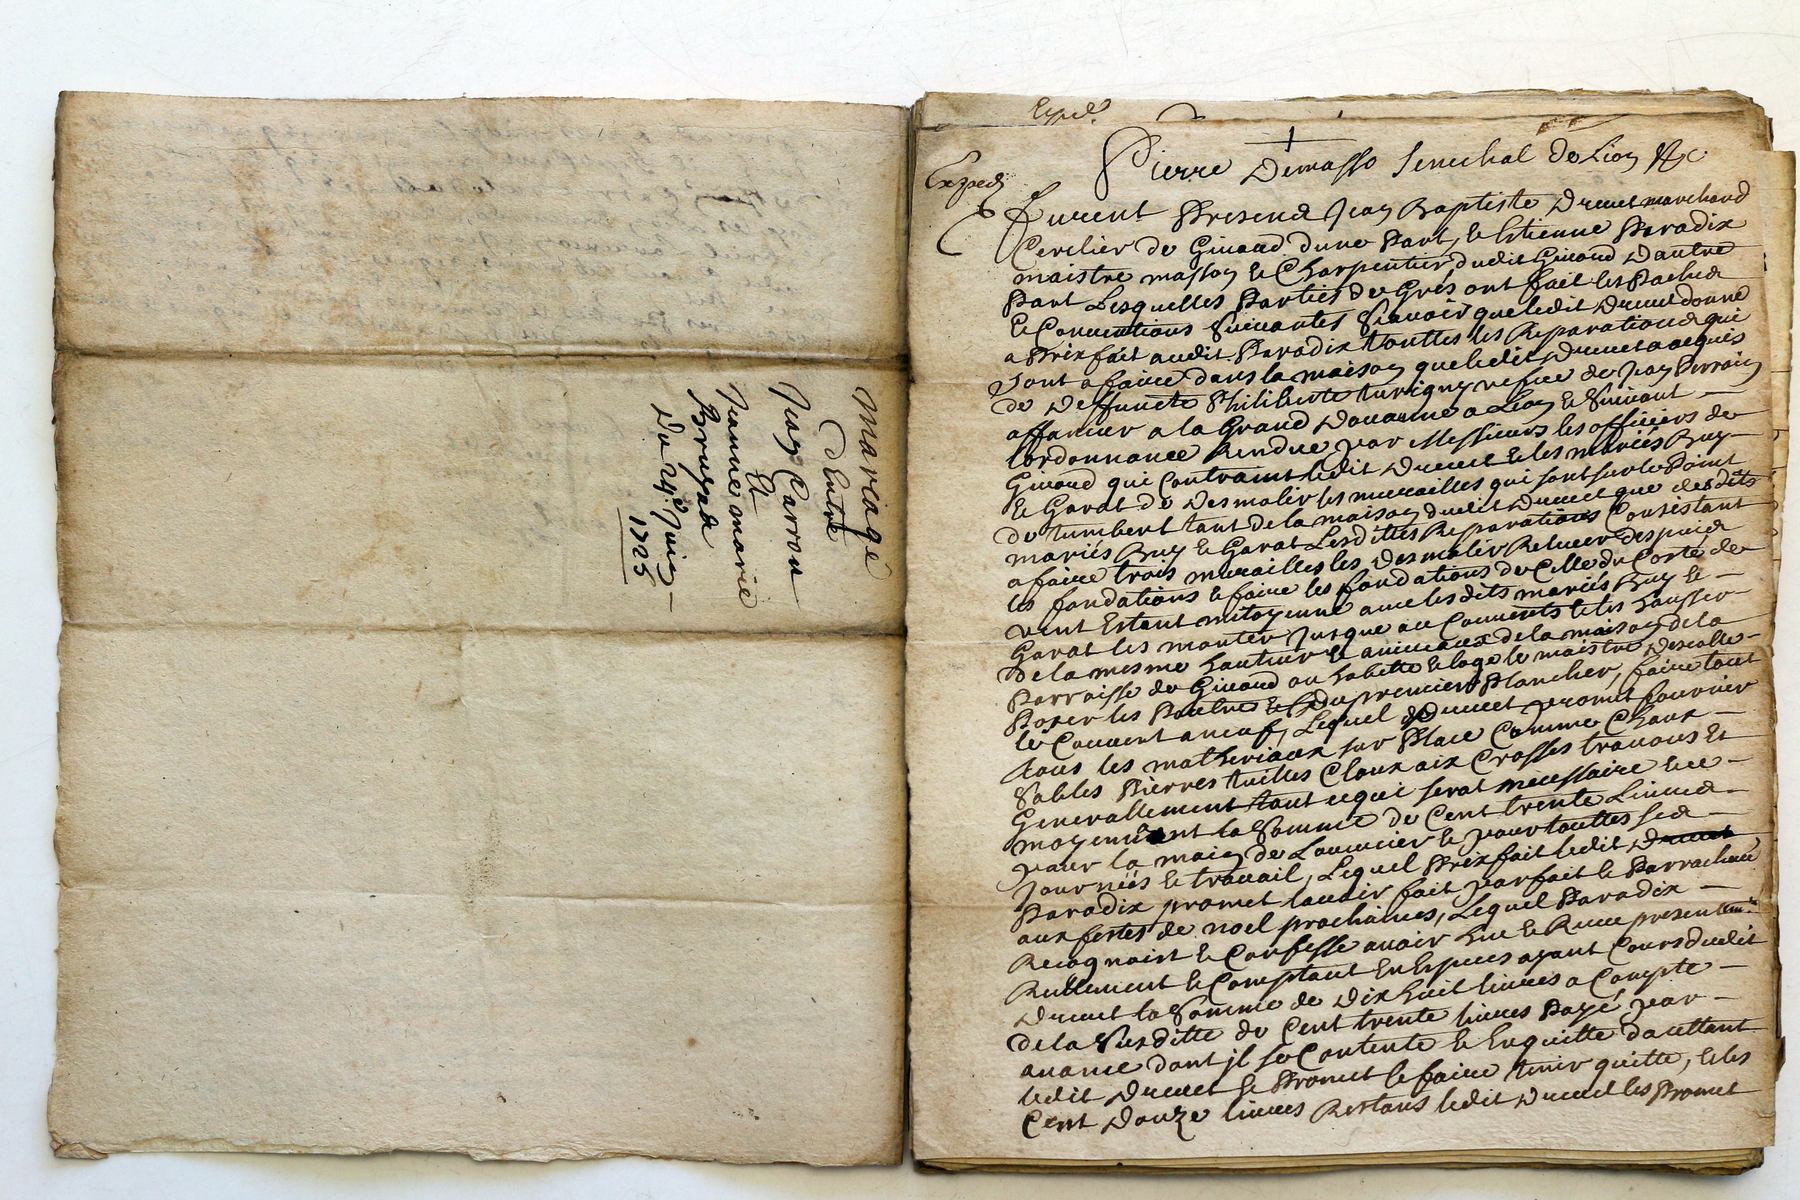 Mariage
d'Entre
Jean Carron
Et
Jeanne marie
Bruyas
Du 24e Juin
1725
Exped.
Pierre Demasso Senechal de Lion &c
Exped.
Furent Present Jean Baptiste Drevet marchand
Cerclier de Givord dune Part, et Estienne Paradix
maistre masson et Charpentier dudit Givord Dautre
Part Lesquelles Parties de Grés ont fait les Pactes
et Conventions Suivantes Scavoir que ledit Drevet donne
a Prixfait audit Paradix touttes les Reparations qui
sont a faire dans la maison que ledit Drevet a acquis
de Deffuncte Philiberte vefve de Jean Perroin
affaneur a la Grand Douanne a Lion et Suivant
lordonnance Rendue par Messieurs les officiers de
Givord qui Contraint ledit Drevet et les mariés Buy
et Garat de Desmolir les murailles qui sont sur le Point
de tumber tant de la maison dudit Drevet que desdits
mariés Buy et Garat Lesdittes Reparations Consistant
a faire trois murailles les Desmolir Relever despuis
les fondations et faire les fondations de Celle du Costé de
vent Estant mitoyenne avec lesdits mariés Buy et
Garat les monter jusque au Couverts et les hausser
de la mesme hauteur et niveaux de la maison de la
Parroisse de Givord ou habitte et loge le maistre Descolle
Poser les Poutres du premier Plancher, faire tout
le Couvert a neuf, Lequel Drevet promet fournir
tous les matheriaux sur Place Comme Chaux
Sables Pierres tuilles Cloux aix Crosses travons Et
Generallement tout ce qui serat necessaire et ce
moyennant la Somme de Cent trente Livres
pour la main de Louvrier et pour touttes ses
Journées et travail, Lequel Prixfait ledit Drevet
Paradix promet lavoir fait parfait et Parrachevé
aux festes de noel prochaines, Lequel Paradix
Recognoist et Confesse avoir heu et Receu presentemt
Reellement et Comptant En Especes ayant Cours dudit
Drevet la Somme de Dix huit livres a Compte
de la Susditte de Cent trente livres Payé par
avance dont il se Contente et Enquitte dautant
ledit Drevet et Promet le faire tenir quitte, et les
Cent Douze livres Restans ledit Drevet les Promet